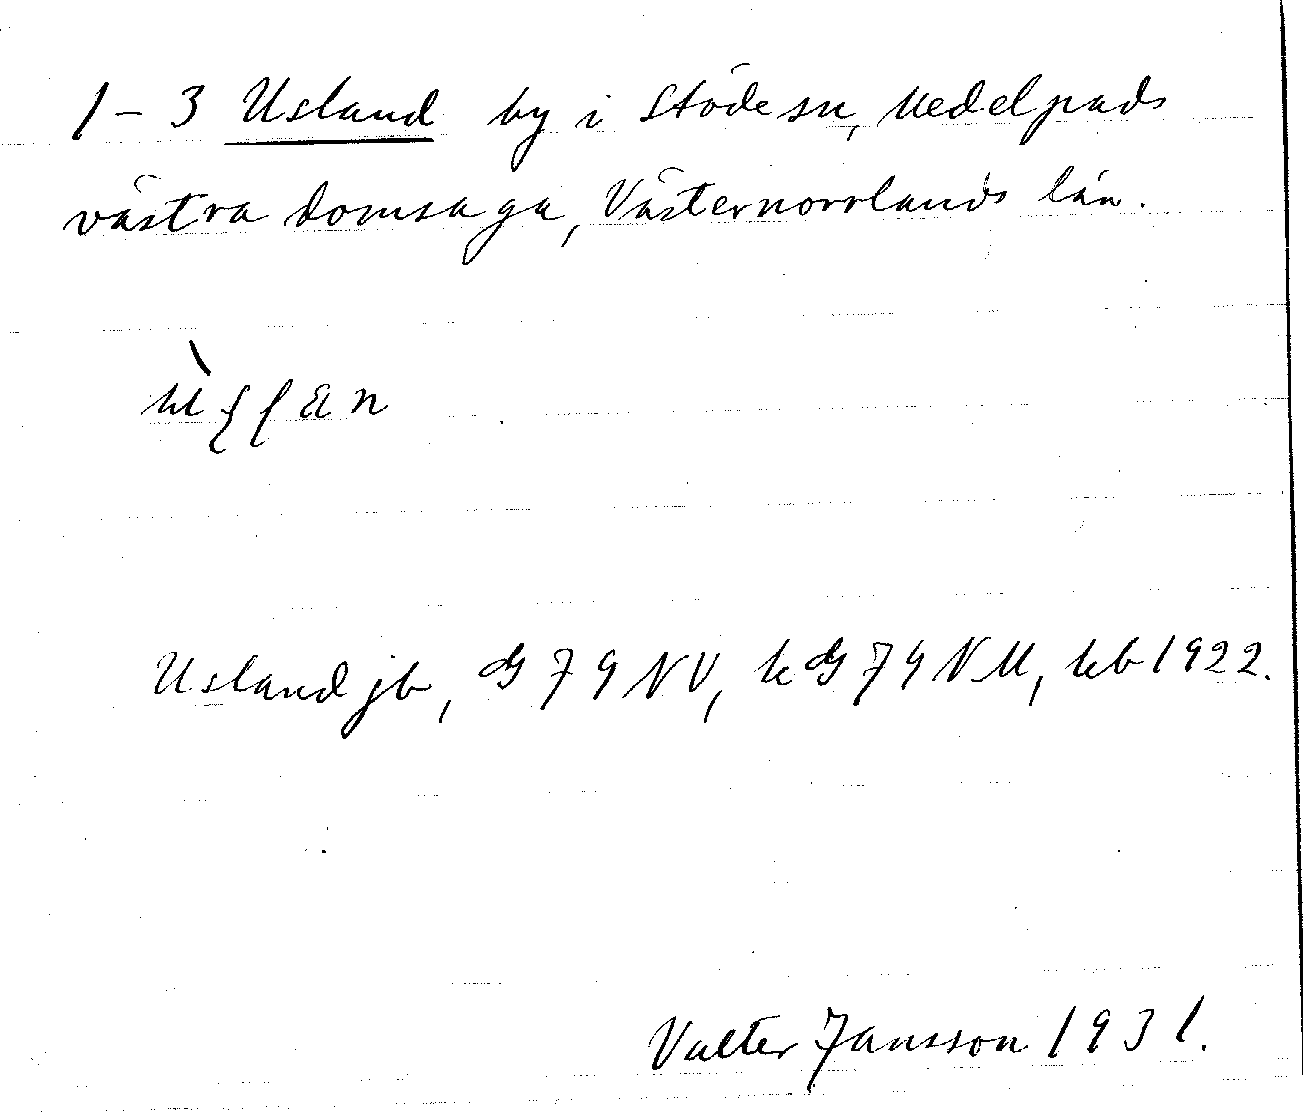 1-3 Usland by i Stöde sn, Medelpads
västra domsaga, Västernorrlands län.
Usland jb, G 79 NV, kG 79 NV, kb 1922.
Valter Jansson 1931.